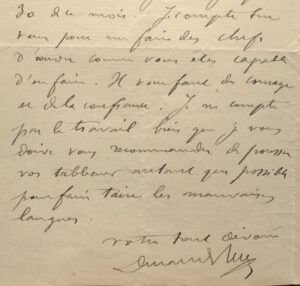 30 du mois. Je compte sur
vous pour me faire des chefs
d'œuvre comme vous êtes capable
d'en faire. Il vous faut du courage
et de la confiance. Je ne compte
pas le travail bien que je vous
doive vous recommander de pousser
vos tableaux autant que possible
pour faire taire les mauvaises
langues.
votre tout dévoué
Durand Ruel